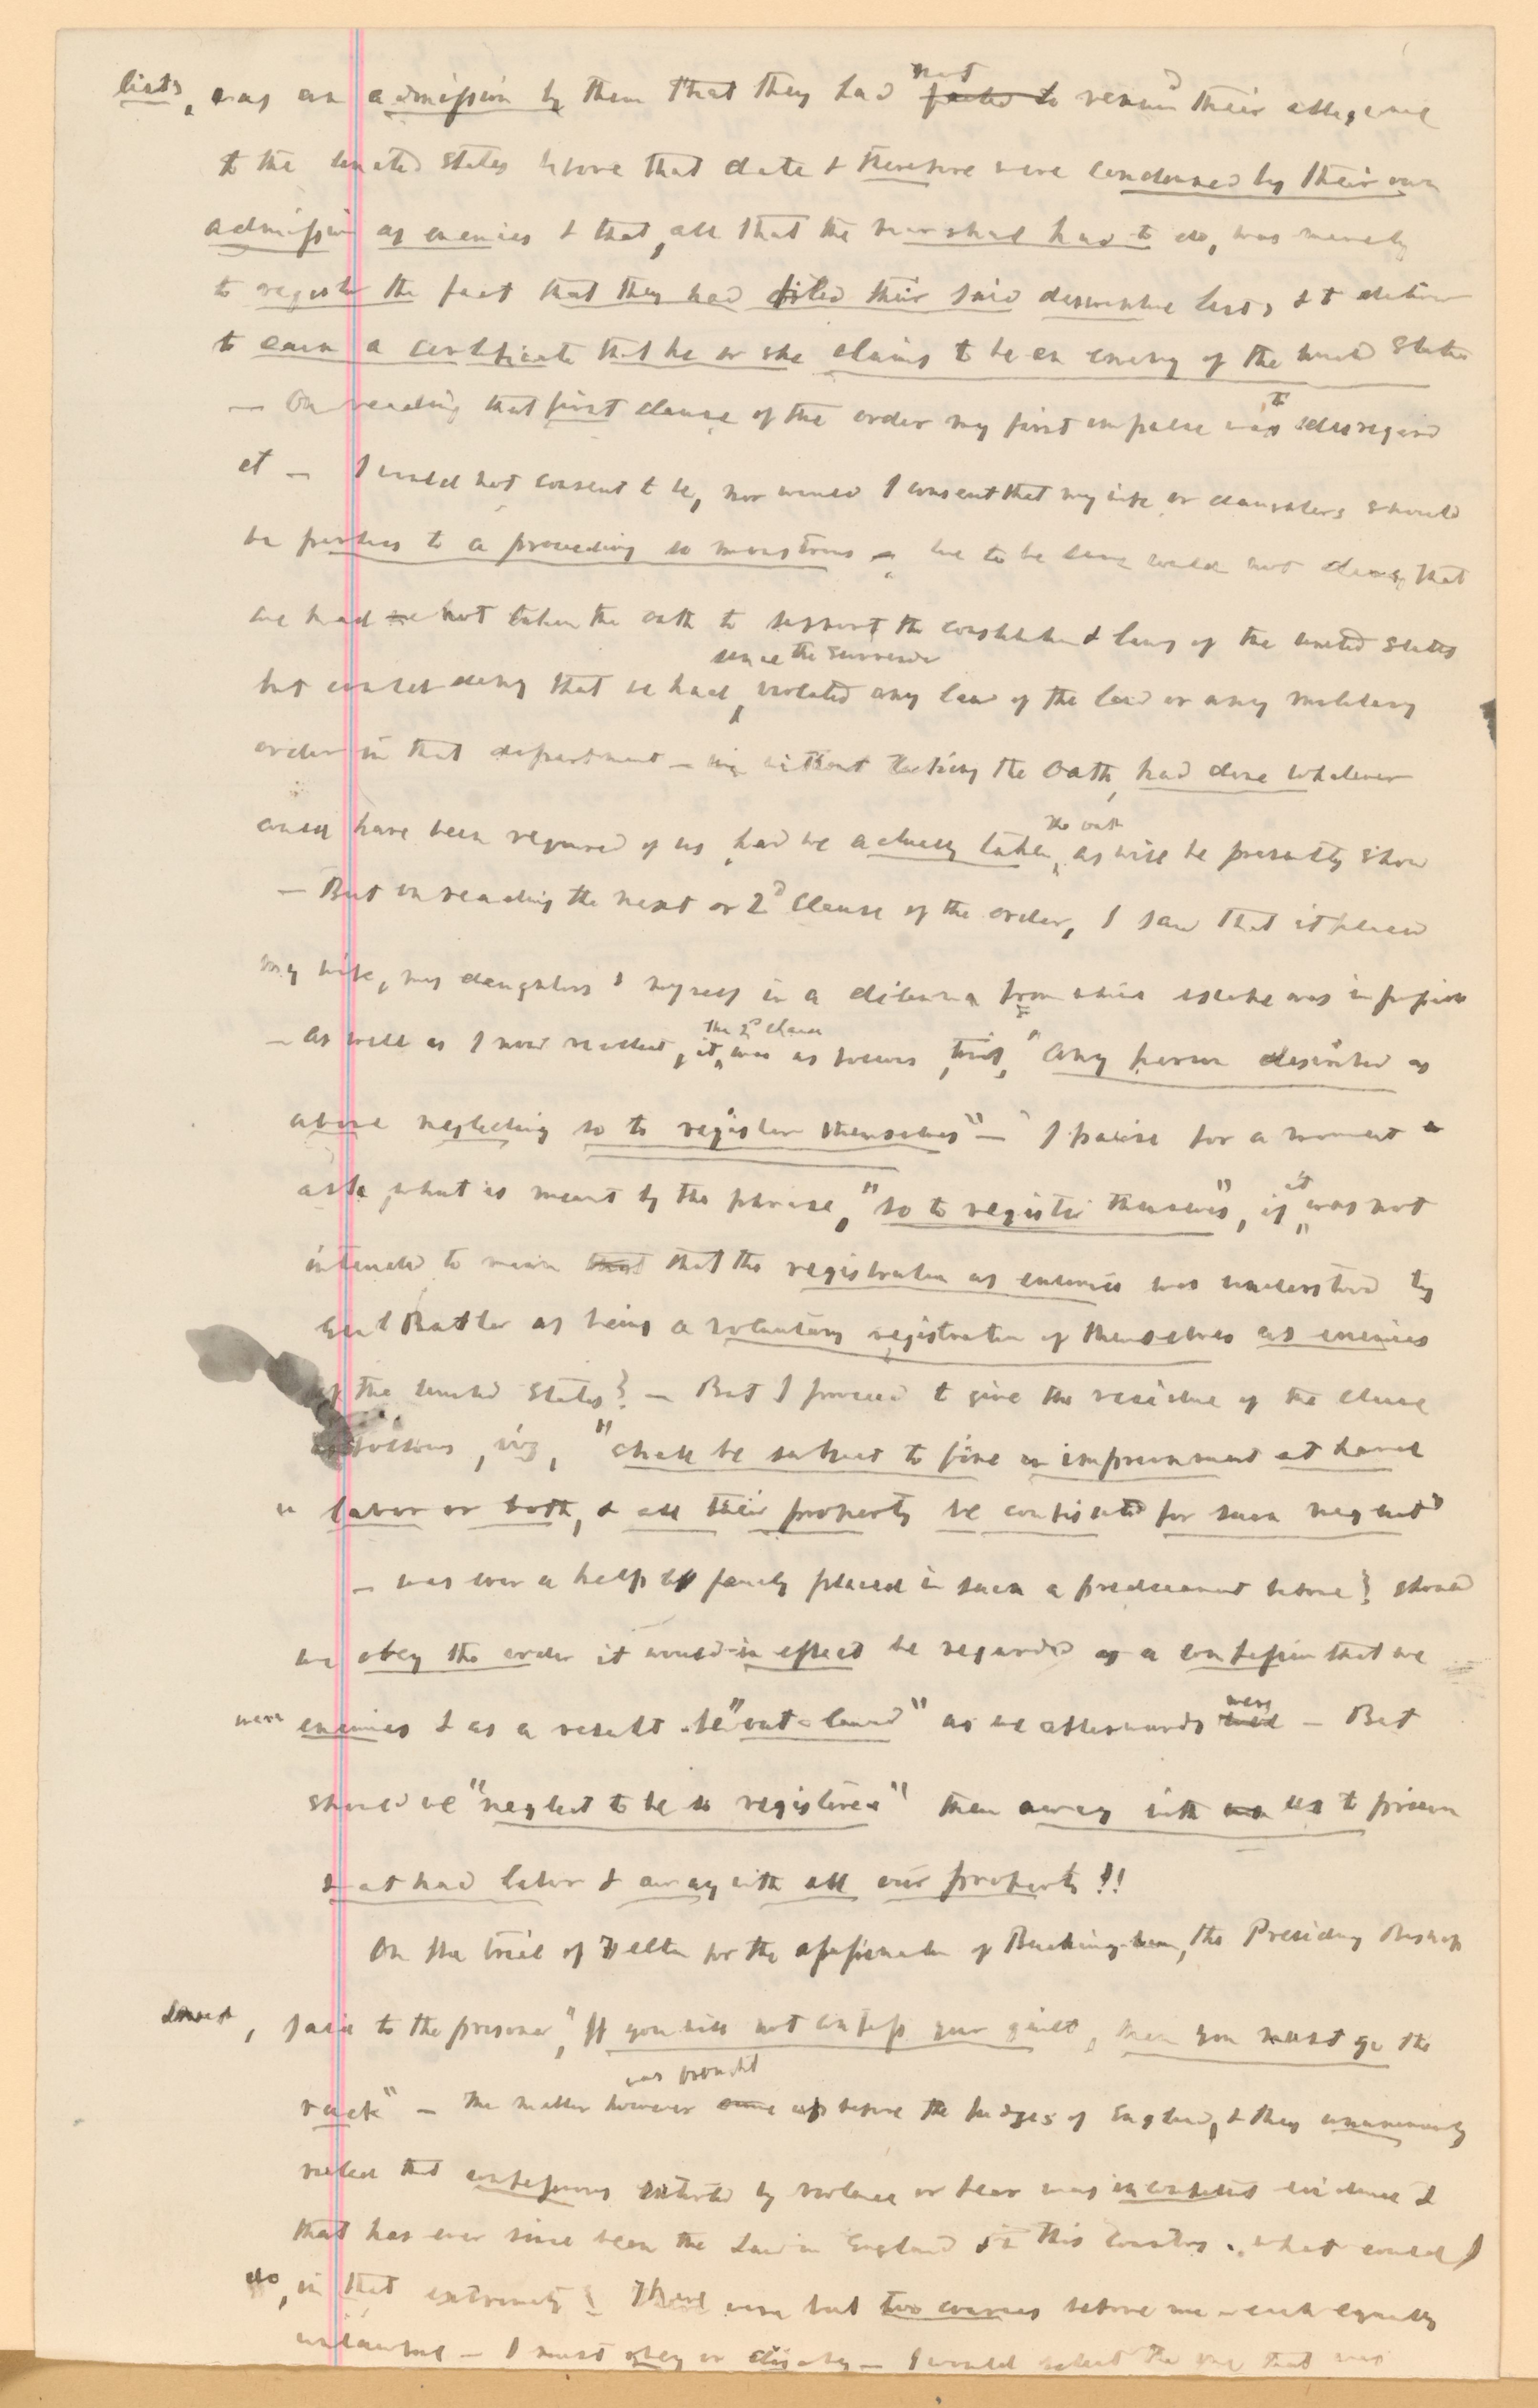 lists, was an admission by them that they had not failed to renew their allegiance
to the United States before that date & therefore were condemned by their own
admission as enemies & that, all that the marshal had to do, was merely
to register the fact that they had filed their said descriptive lists & to deliver
to each a certificate that he or she claims to be an enemy of the United States
— On reading that first clause of the order my first impulse was to disregard
it — I would not consent to be, nor would I consent that my wife or daughters should
be parties to a proceeding so monstrous — we to be sure could not deny that
we had not taken the oath to support the constitution & laws of the United States
since the surrender
but could deny that we had, violated any law of the land or any military
order in that department — we without taking the Oath, had done whatever
could have been required of us, had we actually taken the oath, as will be presently shown
— But on reading the next or 2d Clause of the order, I saw that it placed
my wife, my daughters & myself in a dilemma from which escape was impossible
— As well as I now recollect, it, the 2d clause was as follows, "Any person described as
above neglecting so to register themselves" — I pause for a moment to
ask, what is meant by the phrase, "so to register themselves", if it was not
intended to mean that that the registration as enemies was understood by
Genl Butler as being a voluntary registration of themselves as enemies
of the United States? — But I proceed to give the residue of the clause
as follows, viz, "shall be subject to fine or imprisonment at hard
labor or both, & all their property be confiscated for such neglect"
— was ever a helpless family placed in such a predicament before? should
we obey the order it would in effect be regarded as a confession that we
were enemies & as a result be "out-lawed" as we afterwards were — But
should we "neglect to be so registered" then away with us to prison
& at hard labor & away with all our property!!
On the trial of Felton for the assassination of Buckingham, the Presiding Bishop
said to the prisoner, "If you will not confess your guilt, then you must go the
rack" — The matter however was brought up before the Judges of England, & they unanimously
ruled that confessions extorted by violence or fear was incompetent evidence &
that has ever since been the Law in England & in this Country. what could I
do, in that extremity? There were but two courses before me — each equally
unlawful — I must obey or disobey — I would select the one that was